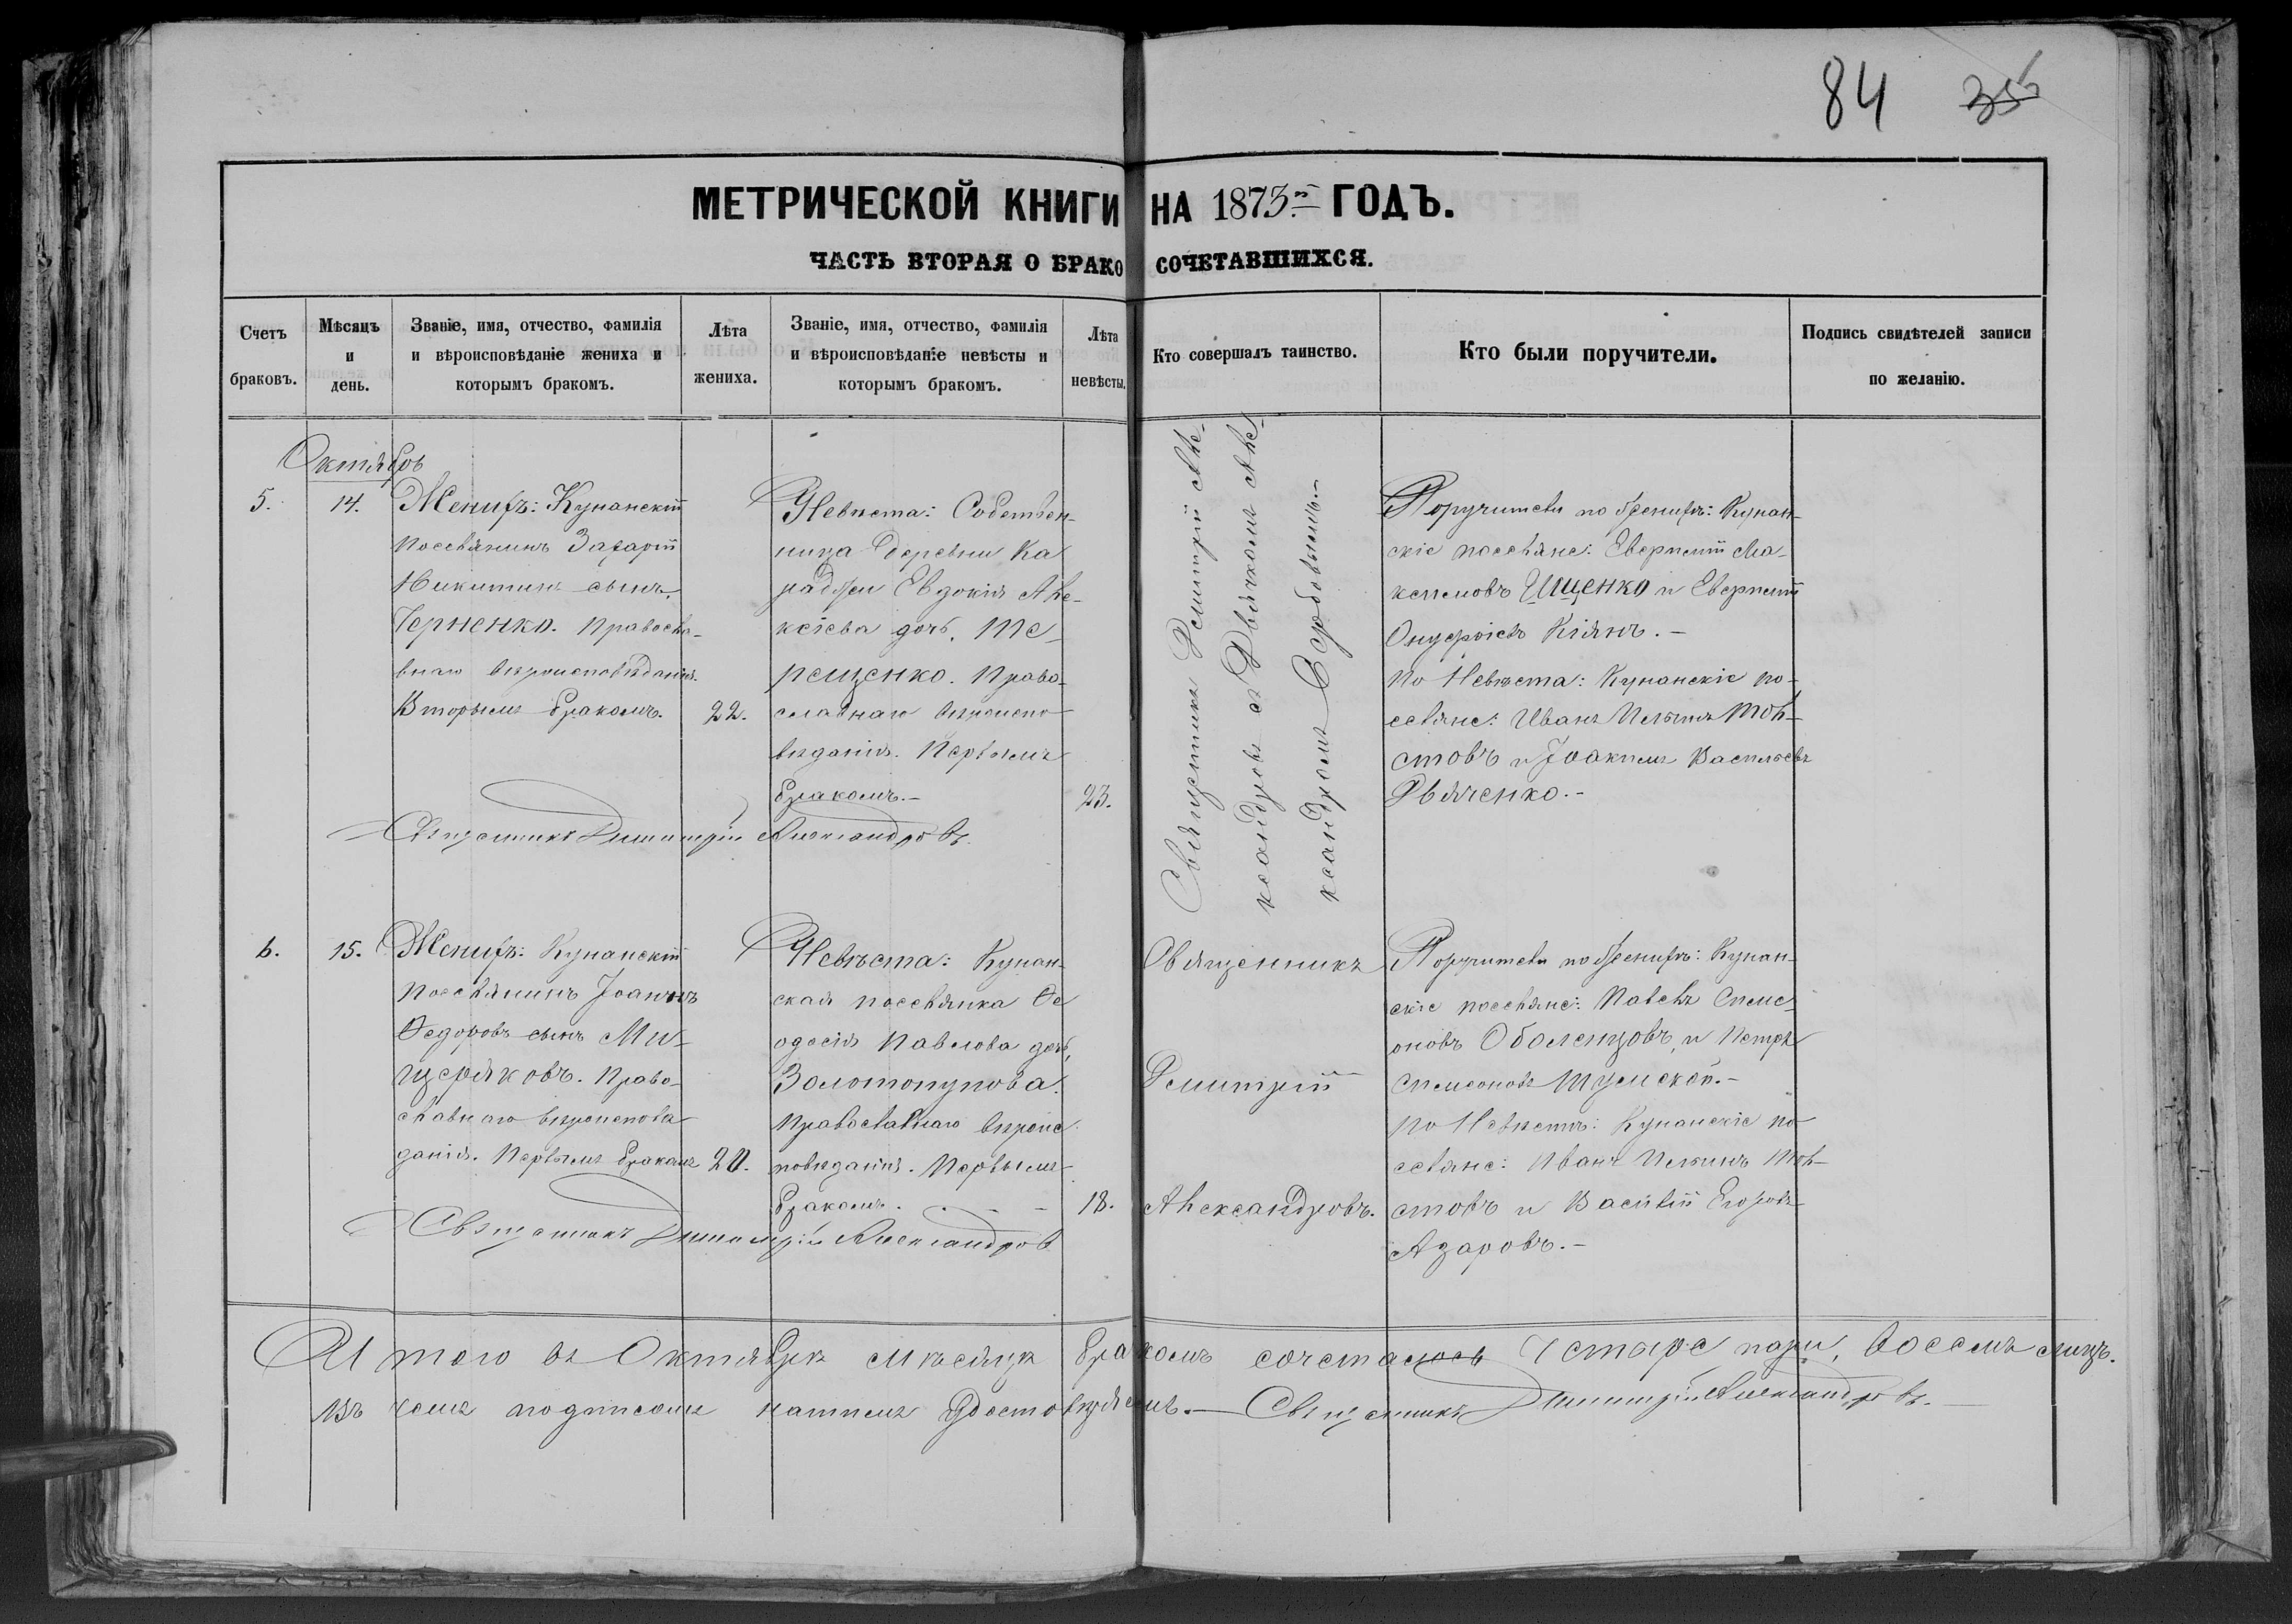 84 356
МЕТРИЧЕСКОЙ КНИГИ НА 1873й ГОДЪ.
ЧАСТЬ ВТОРАЯ О БРАКОСОЧЕТАВШИХСЯ.
Счетъ браковъ.
Мѣсяцъ и день.
Званіе, имя, отчество, фамилія
и вѣроисповѣданіе жениха и
которымъ бракомъ.
Лѣта жениха.
Званіе, имя, отчество, фамилія
и вѣроисповѣданіе невѣсты и
которымъ бракомъ.
Лѣта невѣсты.
Кто совершалъ таинство.
Кто были поручители.
Подпись свидѣтелей записи
по желанію.
Октябрь
5. 14.
Женихъ: Кунанскій
поселянинъ Захарій
Никитинъ сынъ,
Черненко. Правосла-
внаго вѣроисповѣданія.
Вторымъ бракомъ. 22.
Невѣста: Собствен-
ница деревни Ка
раджи Евдокія Але-
ксіева дочь, Те-
рещенко. Право-
славнаго вѣроиспо-
вѣданія. Первымъ
бракомъ.- 23.
Священникъ Димитрій Але-
ксандровъ съ Дьячкомъ Але-
ксандромъ Сербовымъ.-
Поручители по женихѣ: Кунан-
скіе поселяне: Евсрпсній Ма-
ксимовъ Ищенко и Евсрпсній
Онуфріевъ Кіянъ.-
По Невѣста: Кунанскіе по-
селяне: Иванъ Ильинъ Тол-
стовъ и Іоакимъ Васильевъ
Дьяченко.-
Священникъ Димитрій Александровъ.
6. 15.
Женихъ: Кунанскій
поселянинъ Іоаннъ
Ѳедоровъ сынъ Ми-
щеряковъ. Право-
славнаго вѣроисповѣ
данія. Первымъ бракомъ 20.
Невѣста: Кунан-
ская поселянка Ѳе
одосія Павлова дочь,
Золотопупова.
Православнаго вѣроис
повѣданія. Первымъ
бракомъ. - - 18.
Священникъ
Димитрій
Александровъ.
Поручители по женихѣ: Кунан-
скіе поселяне: Павелъ Симе-
оновъ Оболенцовъ, и Петръ
Симеоновъ Тумской.-
По Невѣстѣ: Кунанскіе по
селяне: Иванъ Ильинъ Тол-
стовъ и Василій Егоровъ
Азаровъ.-
Священникъ Димитрій Александровъ
Итого въ Октябрѣ мѣсяцѣ бракомъ сочеталось Четыре пары, восемь лицъ.
Въ чемъ подписомъ нашимъ удостовѣряемъ.- Священникъ Димитрій Александровъ.-